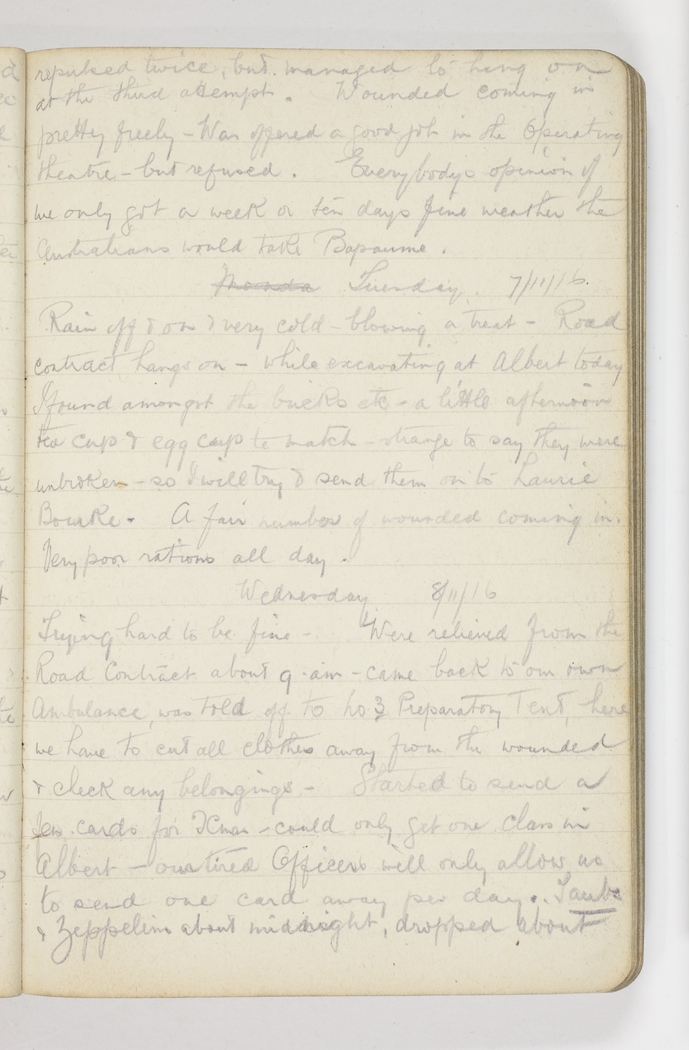 repulsed twice, but managed to hang on
at the third attempt. Wounded coming in
pretty freely - Was offered a good job in the Operating
theatre - but refused. Everybodys opinion if
we only got a week or ten days fine weather the
Australians would take Bapaume.
Monda Tuesday. 7/11/16.
Rain off & on & very cold - blowing a treat - Road
contract hangs on - while excavating at Albert today
I found amongst the bricks etc - a little afternoon
tea cup & egg cup to match - strange to say they were
unbroken - so I will try & send them on to Laurie
Bourke. A fair number of wounded coming in.
Very poor rations all day.
Wednesday 8/11/16
Trying hard to be fine -. Were relieved from the
Road Contract about 9.am - came back to our own
Ambulance, was told off to No 3 Preparatory Tent, here
we have to cut all clothes away from the wounded
& check any belongings - Started to send a
few cards for Xmas - could only get one class in
Albert - our tired Officers will only allow us
to send one card away per day. Taubs
& Zeppelins about midnight, dropped about